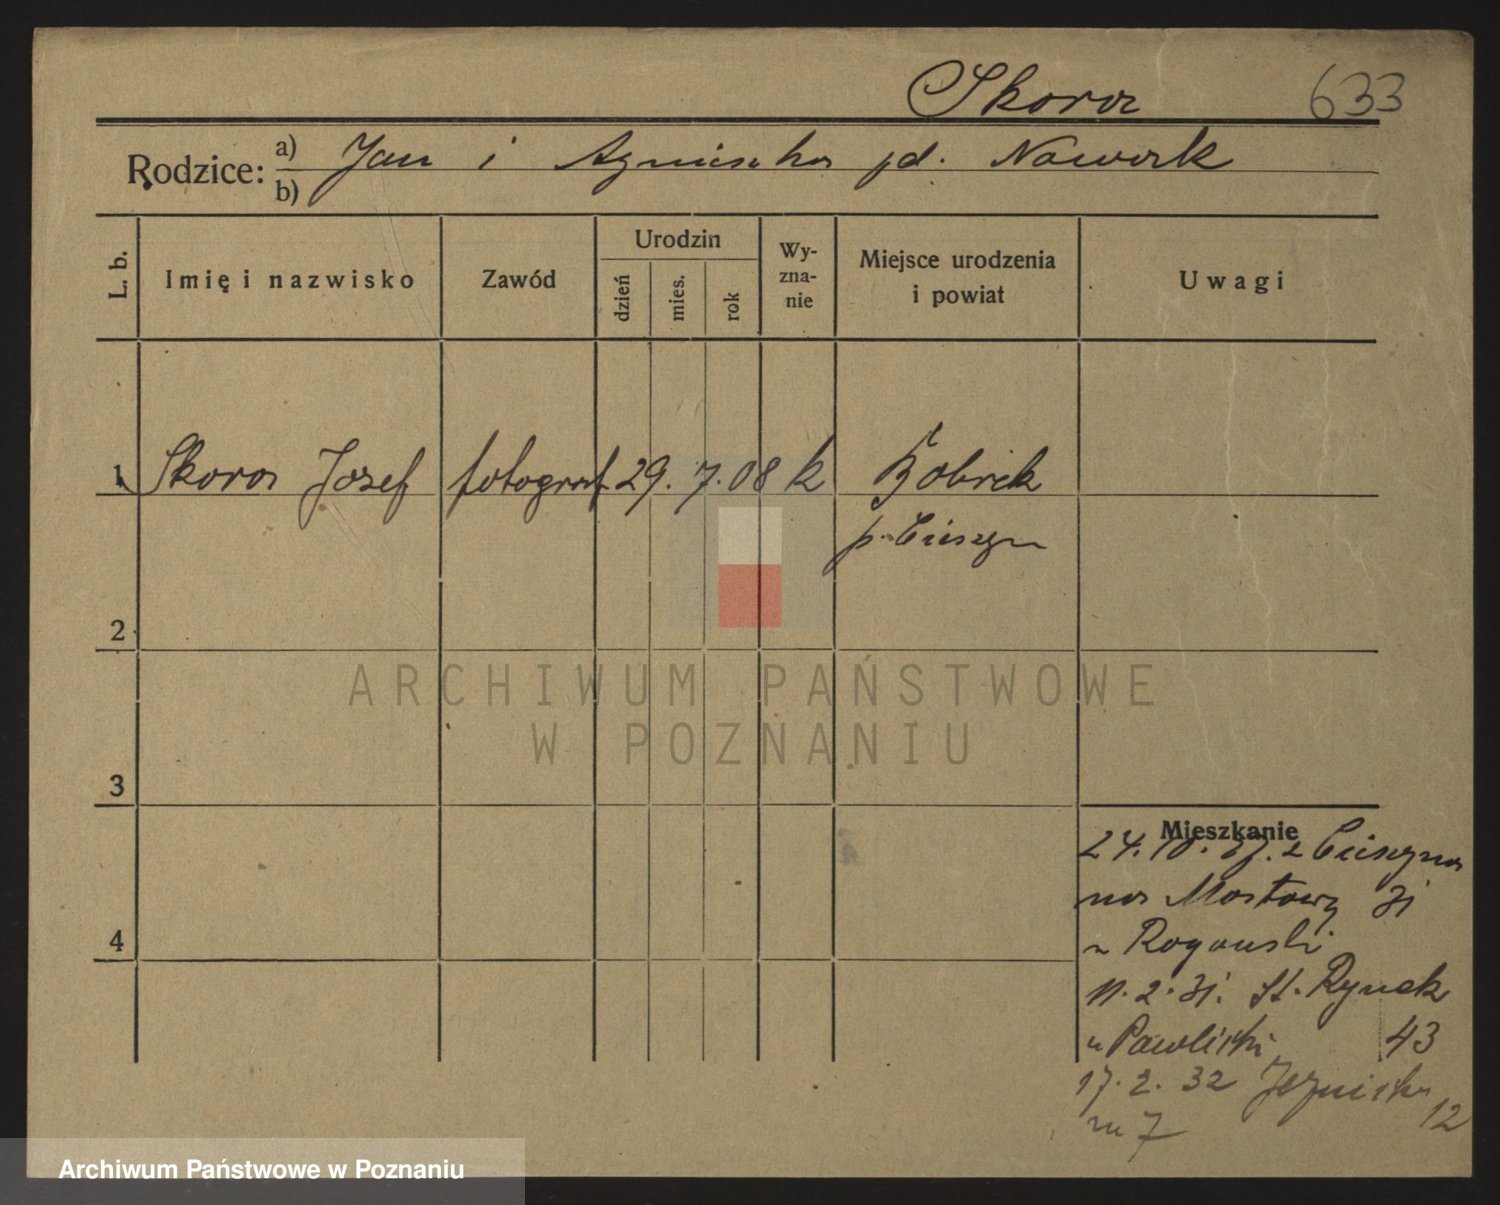 Skora 633
Rodzice: a) Jan i Agnieszka pd. Nowak
b)
L. b. Imię i nazwisko Zawód Urodzin dzień mies. rok Wy-zna-nie Miejsce urodzenia i powiat Uwagi
1 Skora Józef fotograf 29. 7. 08 k Bobrek
p. Cieszyn
2
ARCHIWUM PAŃSTWOWE
W POZNANIU
3
Mieszkanie
24. 10. z Cieszyna
na Mostową 31
u Rogowski
11. 2. 31. St. Rynek
u Pawlicki 43
17. 2. 32 Jezuicka
12
m 7
4
Archiwum Państwowe w Poznaniu